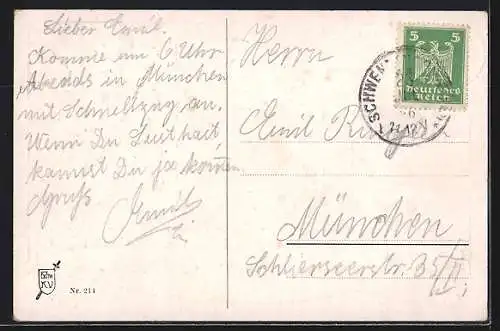 Lieber Emil.
Komme um 6 Uhr
Abends in München
mit Schnellzug an.
Wenn Du Lust hast
kannst Du ja kommen.
Gruß
Emil
Nr. 214
Herrn
Emil
München
Schlierseerstr. 35/II
5 5
Deutsches
Reich
SCHWEN